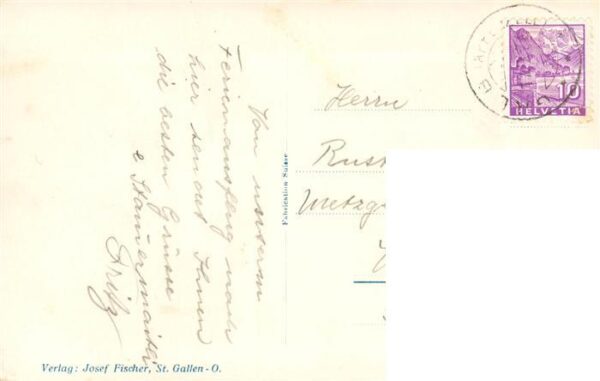 Von unserm
Ferienausflug nach
hier sendet Ihnen
die besten Grüsse
e Stauermaiter
Fritz
Fabrication Suisse
Herrn
Rust
Metzg
10
HELVETIA
Verlag: Josef Fischer, St. Gallen-O.